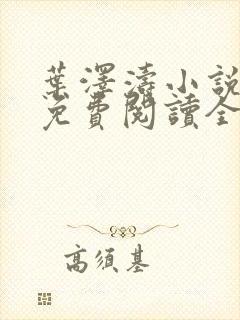 葉澤濤小說
免費閱讀全
高須基